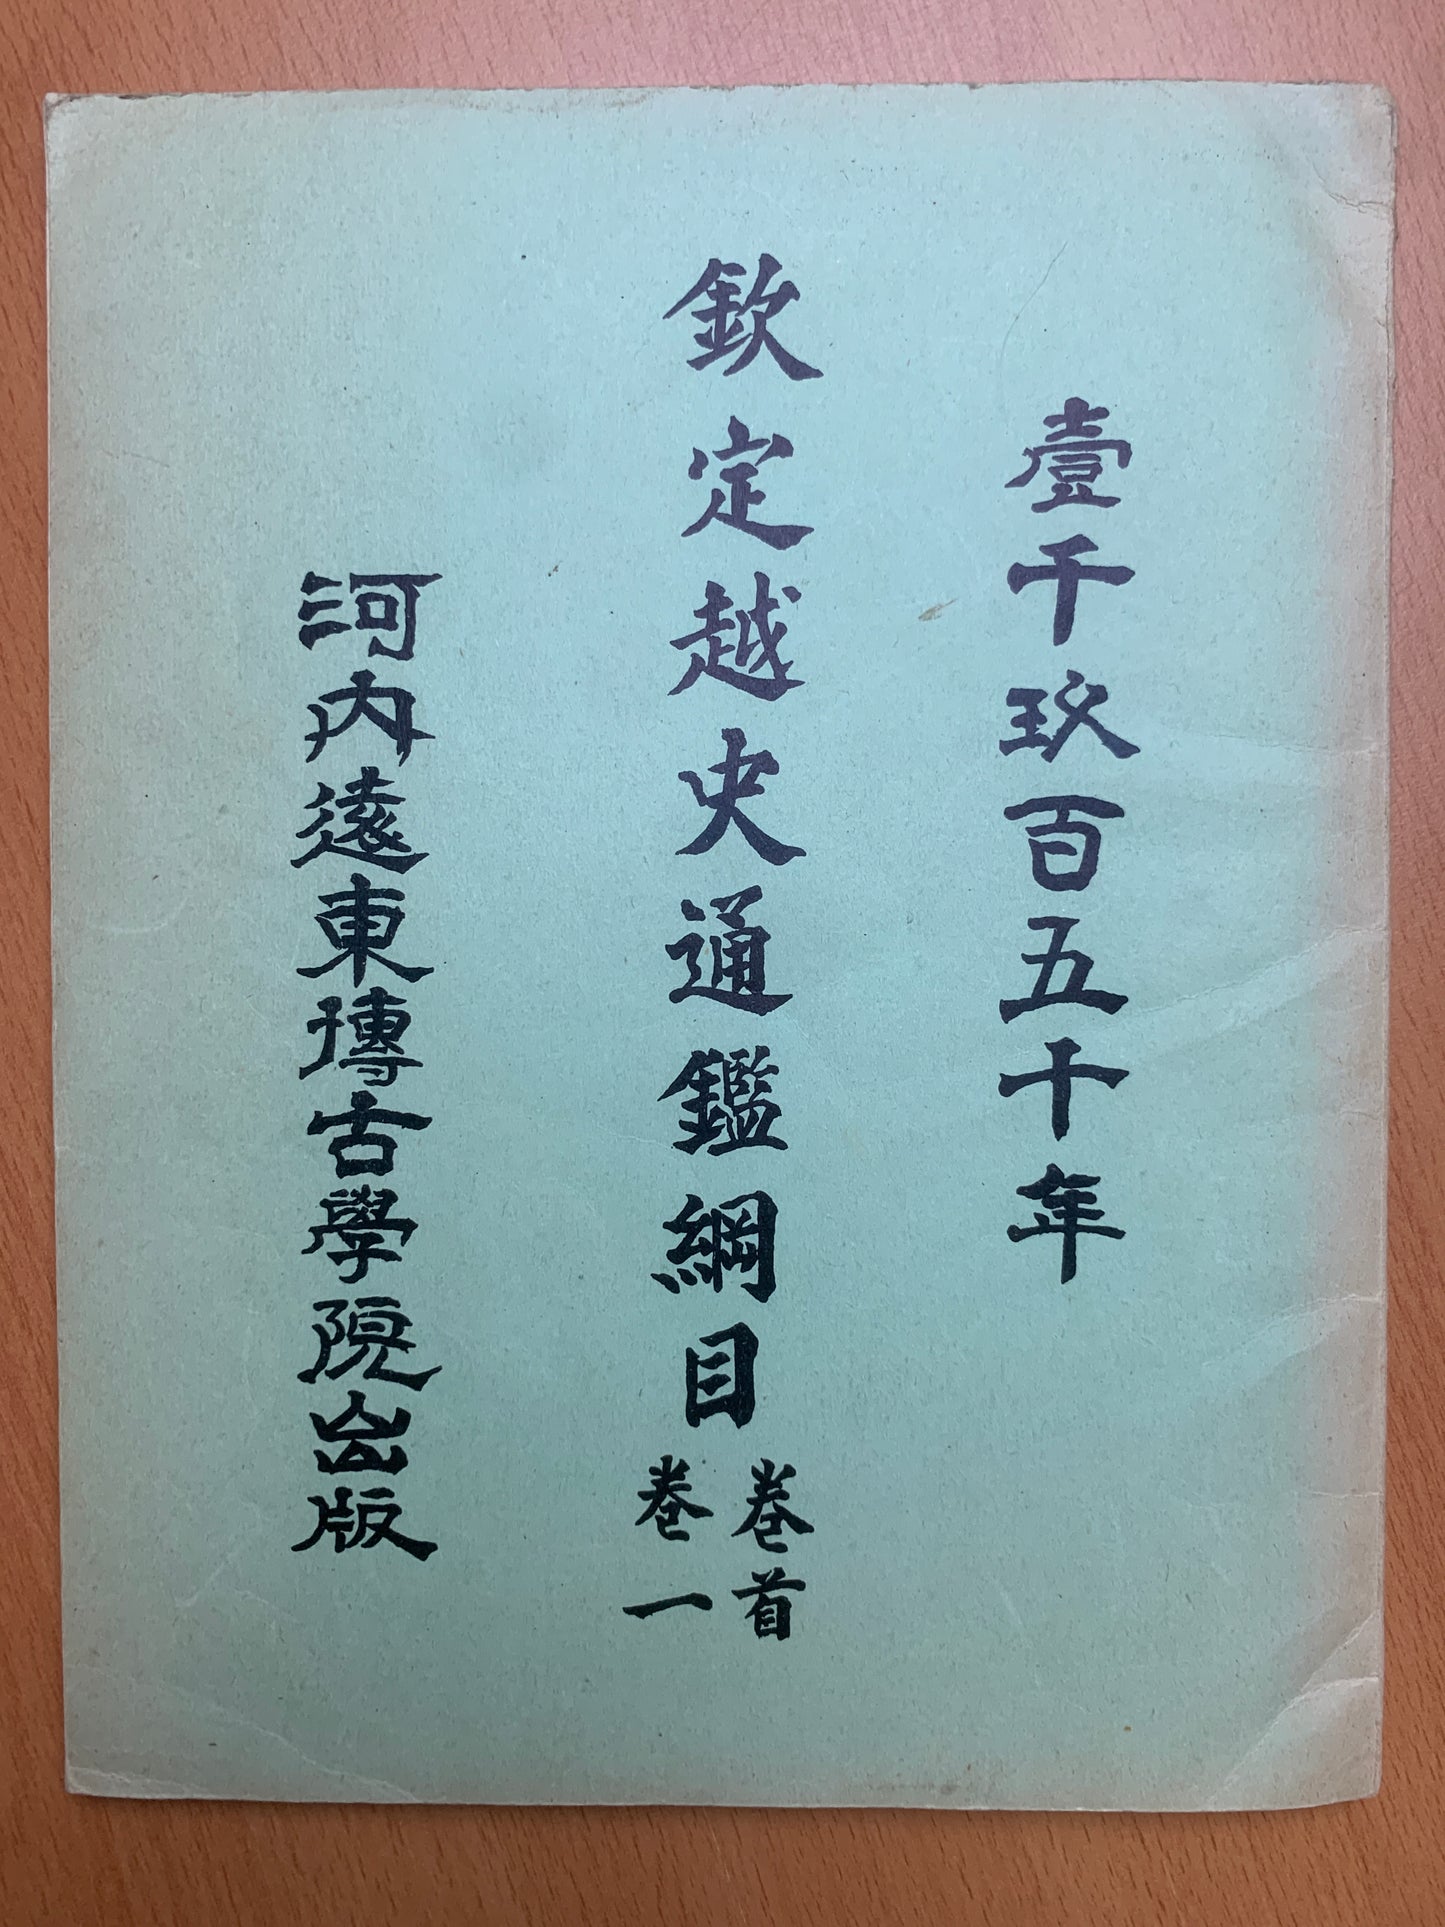 壹千玖百五十年
欽定越史通鑑綱目
卷首
卷一
河内遠東博古學院出版